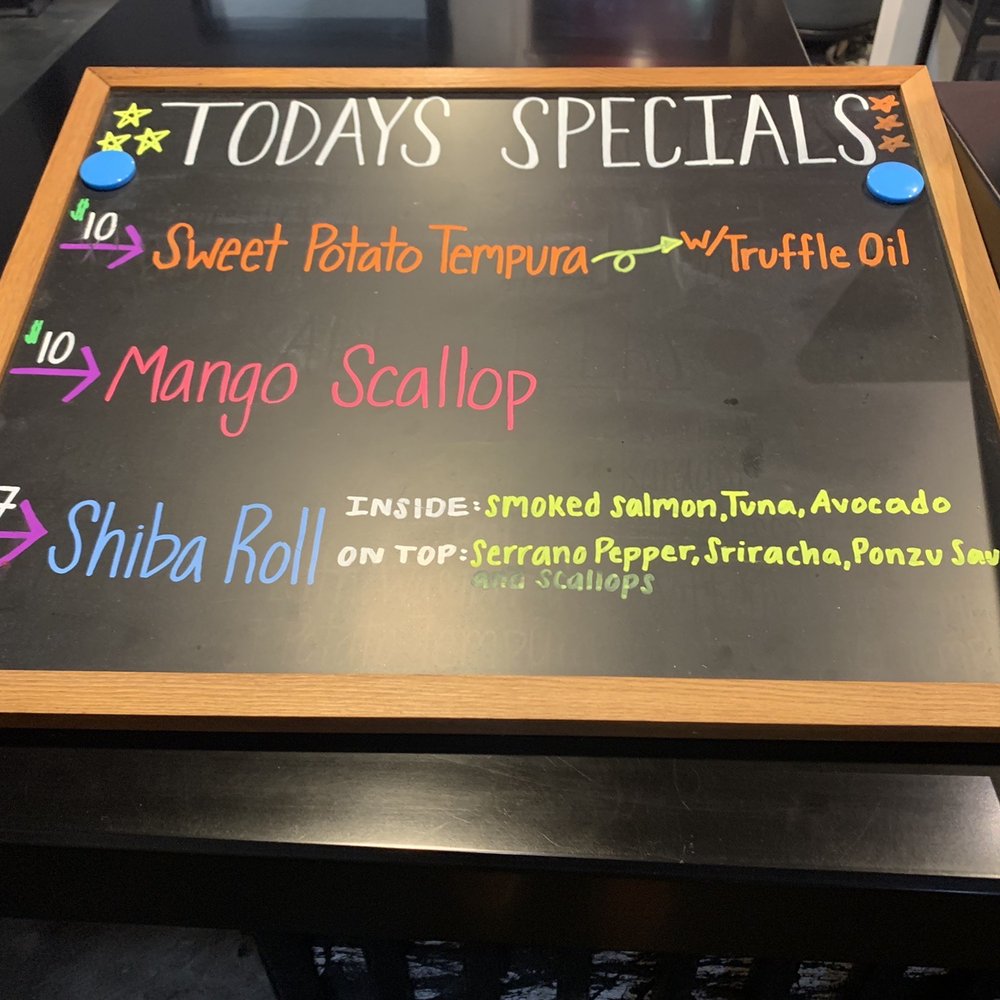 TODAYS SPECIALS
$10 Sweet Potato Tempura w/Truffle Oil
$10 Mango Scallop
7 Shiba Roll
INSIDE: Smoked Salmon, Tuna, Avocado
ON TOP: Serrano Pepper, Sriracha, Ponzu Sau
and Scallops